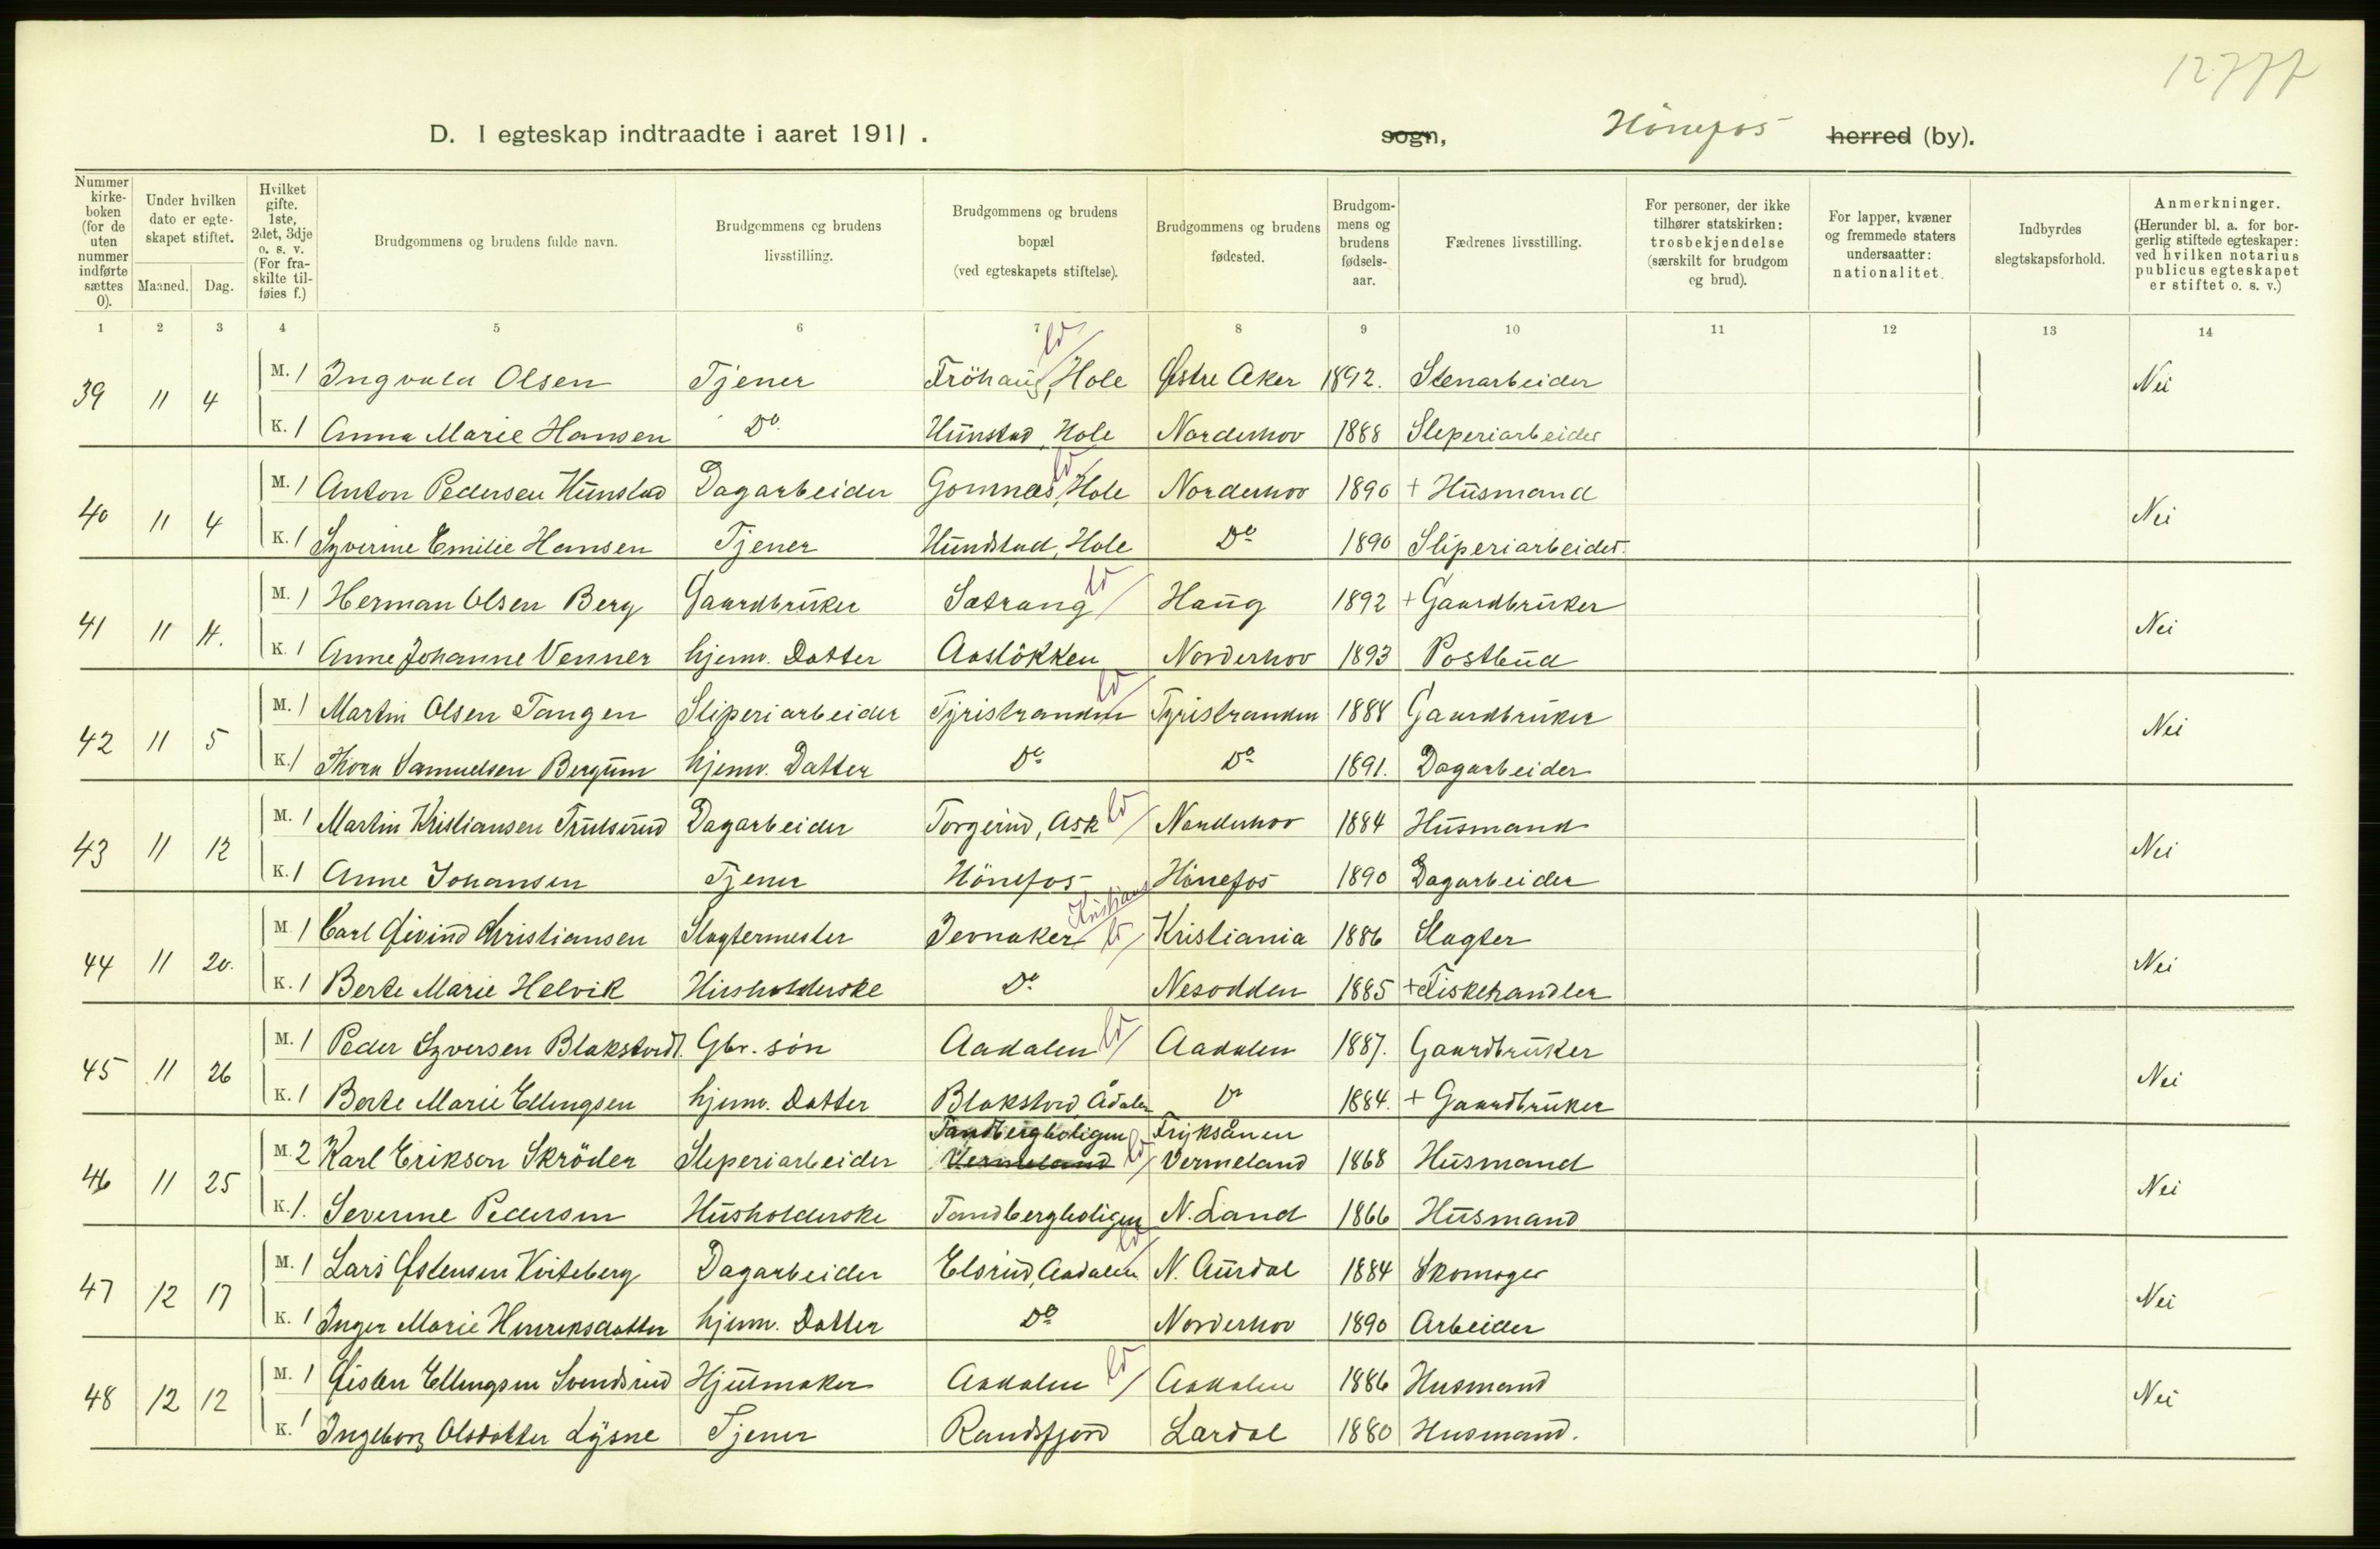 12777
D. I egteskap indtraadte i aaret 1911. sogn, Hönefos herred (by).
Nummer kirke-boken (for de uten nummer indførte sættes 0). | Under hvilken dato er egte-skapet stiftet. Maaned. Dag. | Hvilket gifte. 1ste, 2det, 3dje o. s. v. (For fra-skilte til-føies f.) | Brudgommens og brudens fulde navn. | Brudgommens og brudens livsstilling. | Brudgommens og brudens bopæl (ved egteskapets stiftelse). | Brudgommens og brudens fødested. | Brudgom-mens og brudens fødsels-aar. | Fædrenes livsstilling. | For personer, der ikke tilhører statskirken: trosbekjendelse (særskilt for brudgom og brud). | For lapper, kvæner og fremmede staters undersaatter: nationalitet. | Indbyrdes slegtskapsforhold. | Anmerkninger. (Herunder bl. a. for bor-gerlig stiftede egteskaper: ved hvilken notarius publicus egteskapet er stiftet o. s. v.)
1 2 3 4 5 6 7 8 9 10 11 12 13 14
39 11 4 M. 1 Ingvald Olsen Tjener Fröhaug, Hole Østre Aker 1892. Stenarbeider Nei
K. 1 Anna Marie Hansen Do. Hunstad, Hole Norderhov 1888 Sliperiarbeider
40 11 4 M. 1 Anton Pedersen Hunstad Dagarbeider Gomnæs, Hole Norderhov 1890 + Husmand Nei
K. 1 Syverine Emilie Hansen Tjener Hundstad, Hole Do 1890 Sliperiarbeider.
41 11 4. M. 1 Herman Olsen Berg Gaardbruker Sætrang Haug 1892 + Gaardbruker Nei
K. 1 Anne Johanne Venner hjemv. Datter Aslökken Norderhov 1893 Postbud
42 11 5 M. 1 Martin Olsen Tangen Sliperiarbeider Tyristranden Tyristranden 1888 Gaardbruker Nei
K. 1 Thora Samuelsen Bergum hjemv. Datter Do Do 1891. Dagarbeider
43 11 12 M. 1 Martin Kristiansen Trulserud Dagarbeider Torgerud, Ask Norderhov 1884 Husmand Nei
K. 1 Anne Johansen Tjener Hönefos Hönefos 1890 Dagarbeider
Kristiania
44 11 20. M. 1 Carl Øivind Christiansen Slagtermester Jevnaker Kristiania 1886 Slagter Nei
K. 1 Berte Marie Helvik Husholderske Do Nesodden 1885 + Fiskehandler
45 11 26 M. 1 Peder Syversen Blakstvedt. Gbr. søn Aadalen Aadalen 1887. Gaardbruker Nei
K. 1 Berte Marie Ellingsen hjemv. Datter Blakstvd, Ådalen Do 1884. + Gaardbruker
Tandbergboligen Fryksånen
46 11 25 M. 2 Karl Erikson Skröder Sliperiarbeider Vermeland Vermeland 1868 Husmand Nei
K. 1. Severine Pedersen Husholderske Tandbergboligen N. Land 1866 Husmand
47 12 17 M. 1 Lars Østensen Kviteberg Dagarbeider Elsrud, Aadalen N. Aurdal 1884 Skomager Nei
K. 1 Inger Marie Henriksdatter hjemv. Datter Do Norderhov 1890 Arbeider
48 12 12 M. 1 Øisten Ellingsen Svendsrud Hjulmaker Aadalen Aadalen 1886 Husmand Nei
K. 1 Ingeborg Olsdatter Lysne Tjener Randsfjord Lardal 1880 Husmand.